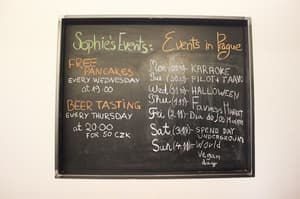 Sophie's Events:
FREE
PANCAKES
EVERY WEDNESDAY
at 19:00
BEER TASTING
EVERY THURSDAY
at 20:00
FOR 50 CZK
Events in Prague
Mon KARAOKE
Tue PILOT +
Wed HALLOWEEN
Thu Farmers Market
Fri Dia de los
Sat SPEND DAY
UNDERGROUND
Sun World
Vegan
Day